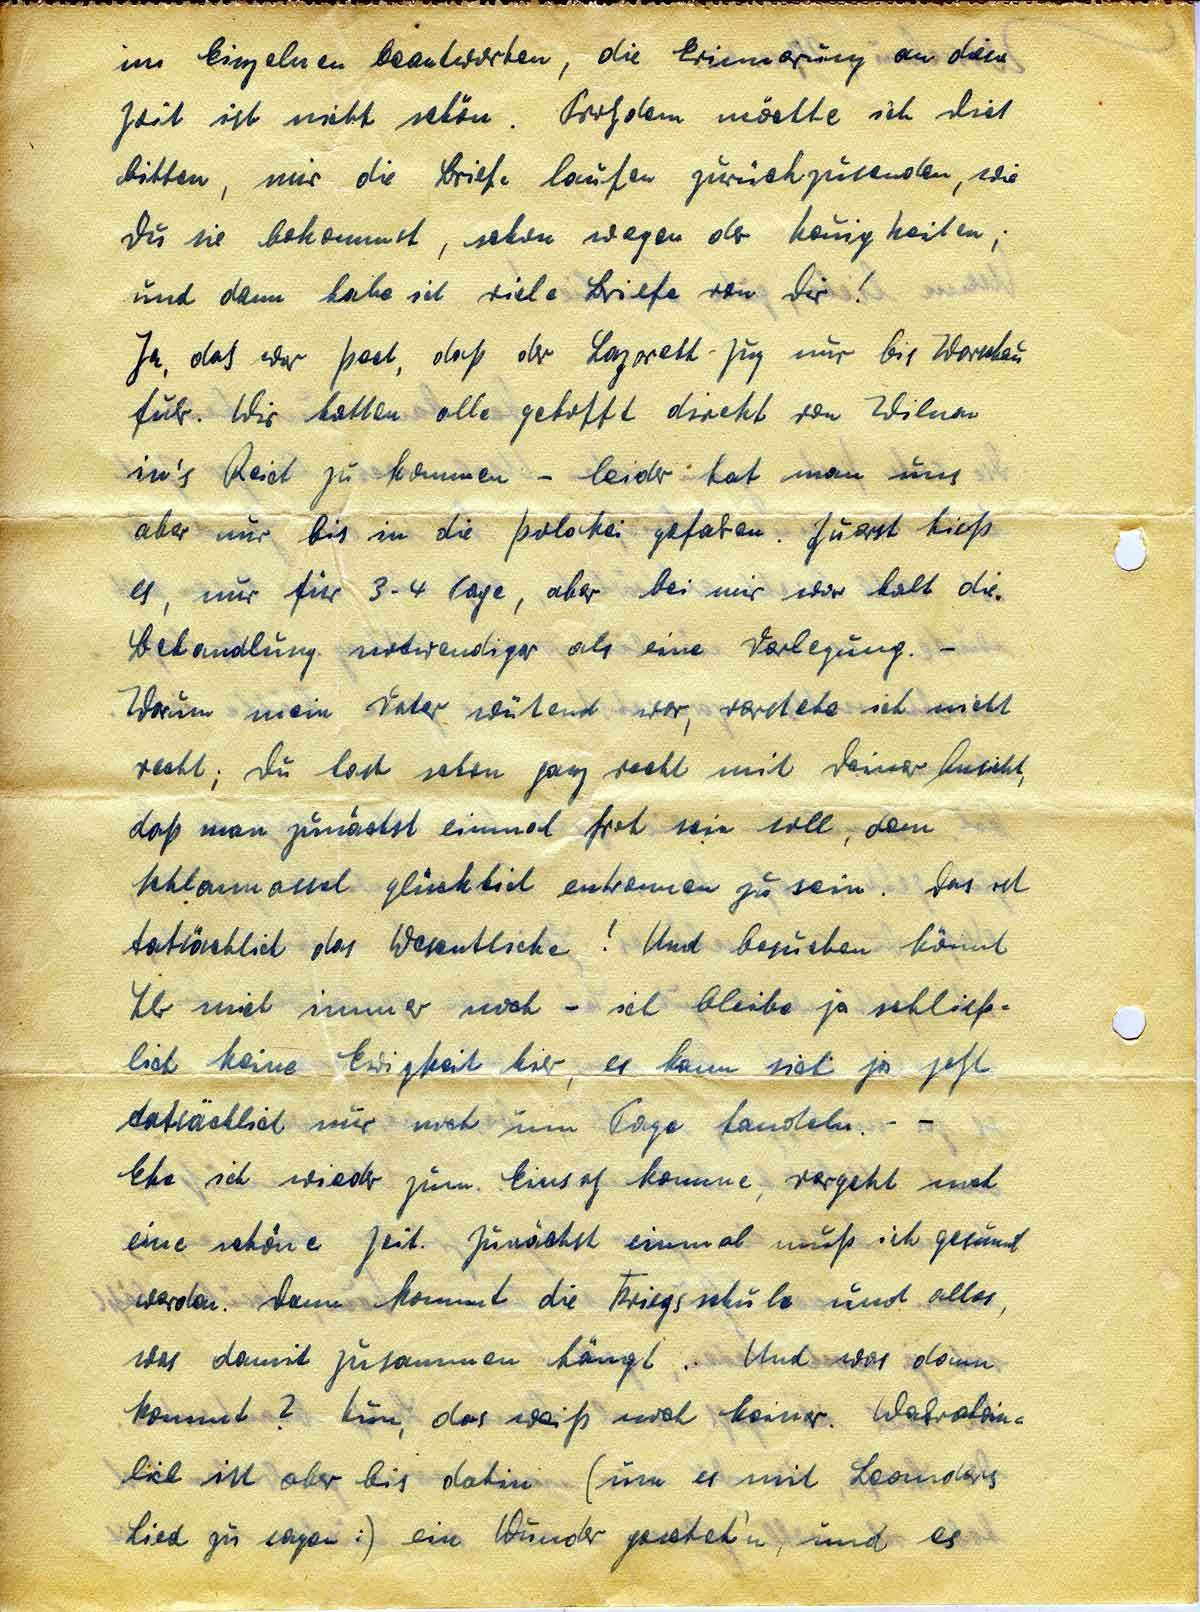 im Einzelnen beantworten, die Erinnerung an diese
Zeit ist nicht schön. Trotzdem möchte ich Dich
bitten, mir die Briefe laufen zurückzusenden, wie
Du sie bekommst, schon wegen der Neuigkeiten;
und dann habe ich viele Briefe von Dir!
Ja, das war Pech, daß der Lazarett-Zug nur bis Warschau
fuhr. Wir hatten alle gehofft direkt von Wilna
in's Reich zu kommen - leider hat man uns
aber nur bis in die Polakei gefahren. Zuerst hieß
es, nur für 3-4 Tage, aber bei mir war halt die
Behandlung notwendiger als eine Verlegung. -
Warum mein Vater wütend war, verstehe ich nicht
recht; Du hast schon ganz recht mit Deiner Ansicht,
daß man zunächst einmal froh sein soll, dem
Schlammassel glücklich entronnen zu sein. Das ist
tatsächlich das Wesentliche! Und besuchen könnt
Ihr mich immer noch - ich bleibe ja schließ-
lich keine Ewigkeit hier, es kann sich ja jetzt
tatsächlich nur noch um Tage handeln. - -
Ehe ich wieder zum Einsatz komme, vergeht noch
eine schöne Zeit. Zunächst einmal muß ich gesund
werden. Dann kommt die Kriegsschule und alles,
was damit zusammen hängt.. Und was dann
kommt? Nun, das weiß noch keiner. Wahrschein-
lich ist aber bis dahin (um es mit Leanders
Lied zu sagen:) ein Wunder gescheh'n, und es